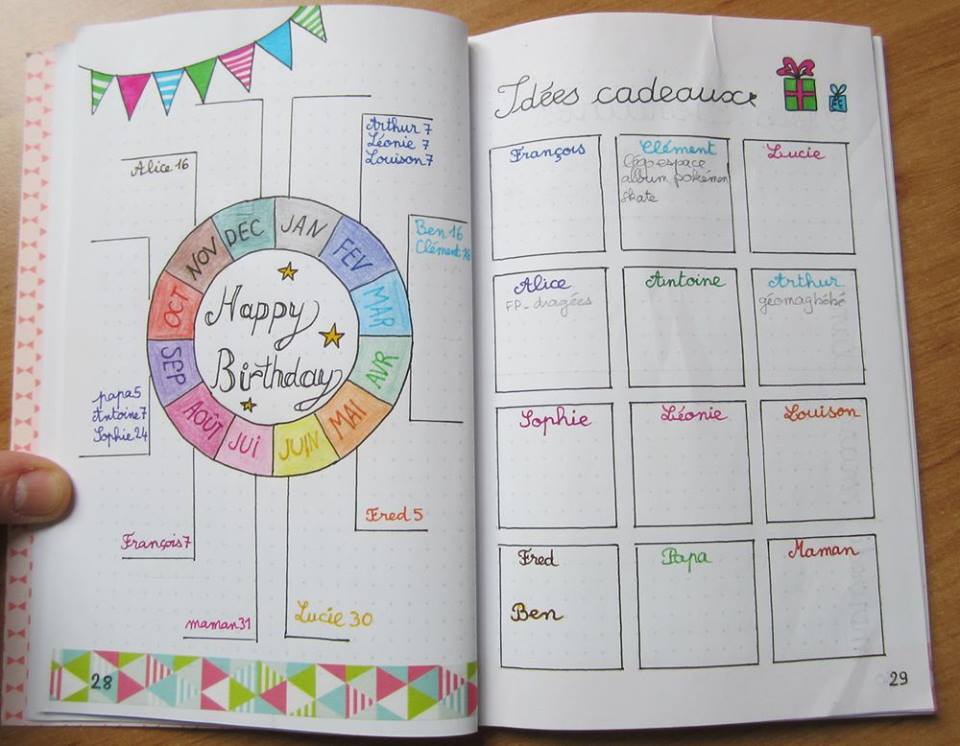 Alice 16
Arthur 7
Léonie 7
Louison 7
Ben 16
DEC
JAN
FEV
MAR
AVR
MAI
JUIN
JUI
AOÛT
SEP
OCT
NOV
Happy
Birthday
papa 5
Antoine 7
Sophie 24
Fred 5
François 7
maman 31
Lucie 30
28
Idées cadeaux
François
Clément
album pokémon
skate
Lucie
Alice
FP_dragées
Antoine
Arthur
géomagbébé
Sophie
Léonie
Louison
Fred
Ben
Papa
Maman
29